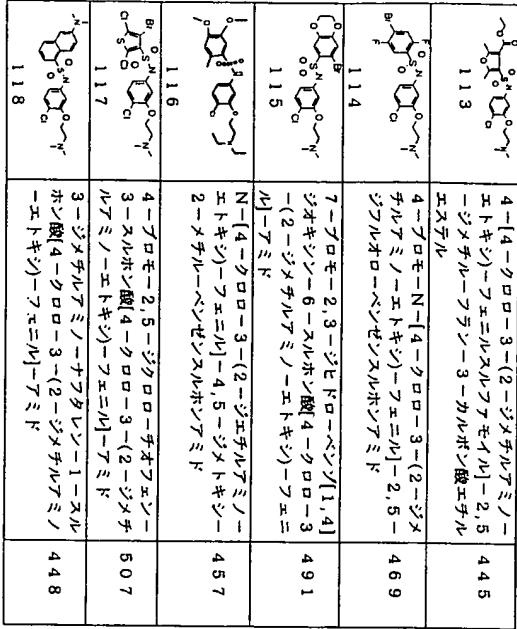 113
4-[4-クロロ-3-(2-ジメチルアミノ-
エトキシ)-フェニルスルファモイル]-2,5
-ジメチル-フラン-3-カルボン酸エチル
エステル
445
114
4-ブロモ-N-[4-クロロ-3-(2-ジメ
チルアミノ-エトキシ)-フェニル]-2,5-
ジフルオロ-ベンゼンスルホンアミド
469
115
7-ブロモ-2,3-ジヒドロ-ベンゾ[1,4]
ジオキシン-6-スルホン酸[4-クロロ-3
-(2-ジメチルアミノ-エトキシ)-フェニ
ル]-アミド
491
116
N-[4-クロロ-3-(2-ジエチルアミノ-
エトキシ)-フェニル]-4,5-ジメトキシ-
2-メチル-ベンゼンスルホンアミド
457
117
4-ブロモ-2,5-ジクロロ-チオフェン-
3-スルホン酸[4-クロロ-3-(2-ジメチ
ルアミノ-エトキシ)-フェニル]-アミド
507
118
3-ジメチルアミノ-ナフタレン-1-スル
ホン酸[4-クロロ-3-(2-ジメチルアミノ
-エトキシ)-フェニル]-アミド
448